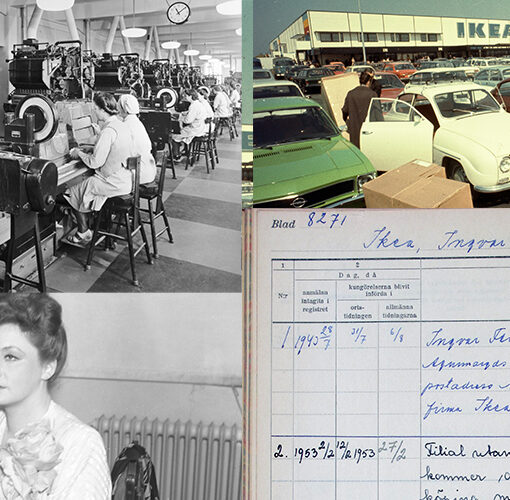 IKEA
Blad 8271
Ikea, Ingvar
1
2
Dag, då
N:r
anmälan
intagits i
registret
kungörelserna blivit
införda i
orts-
tidningen
allmänna
tidningarna
1 1943 28/7 31/7 6/8 Ingvar
postadress
firma Ikea
2. 1953 2/2 12/2 1953 27/2 Filial utan
kommer